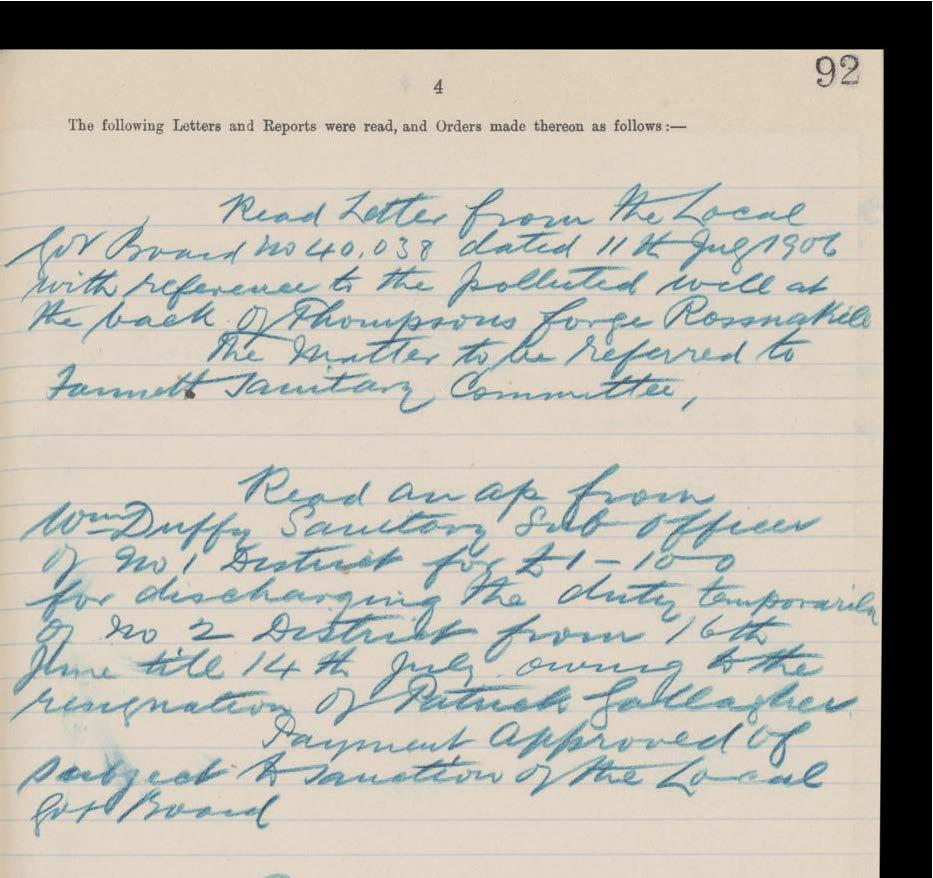 92
4
The following Letters and Reports were read, and Orders made thereon as follows:—
Read Letter from the Local
Gov Board no 40.038 dated 11th July 1906
with reference to the polluted well at
the back of Thompsons forge Rossnakill
The Matter to be referred to
Fannett Sanitary Committee,
Read an ap from
Wm Duffy Sanitary Sub Officer
of No 1 District for £1-10-0
for discharging the duty temporarily
of no 2 District from 16th
June till 14th July owing to the
resignation of Patrick Gallagher
Payment Approved of
subject to sanction of the Local
Gov Board